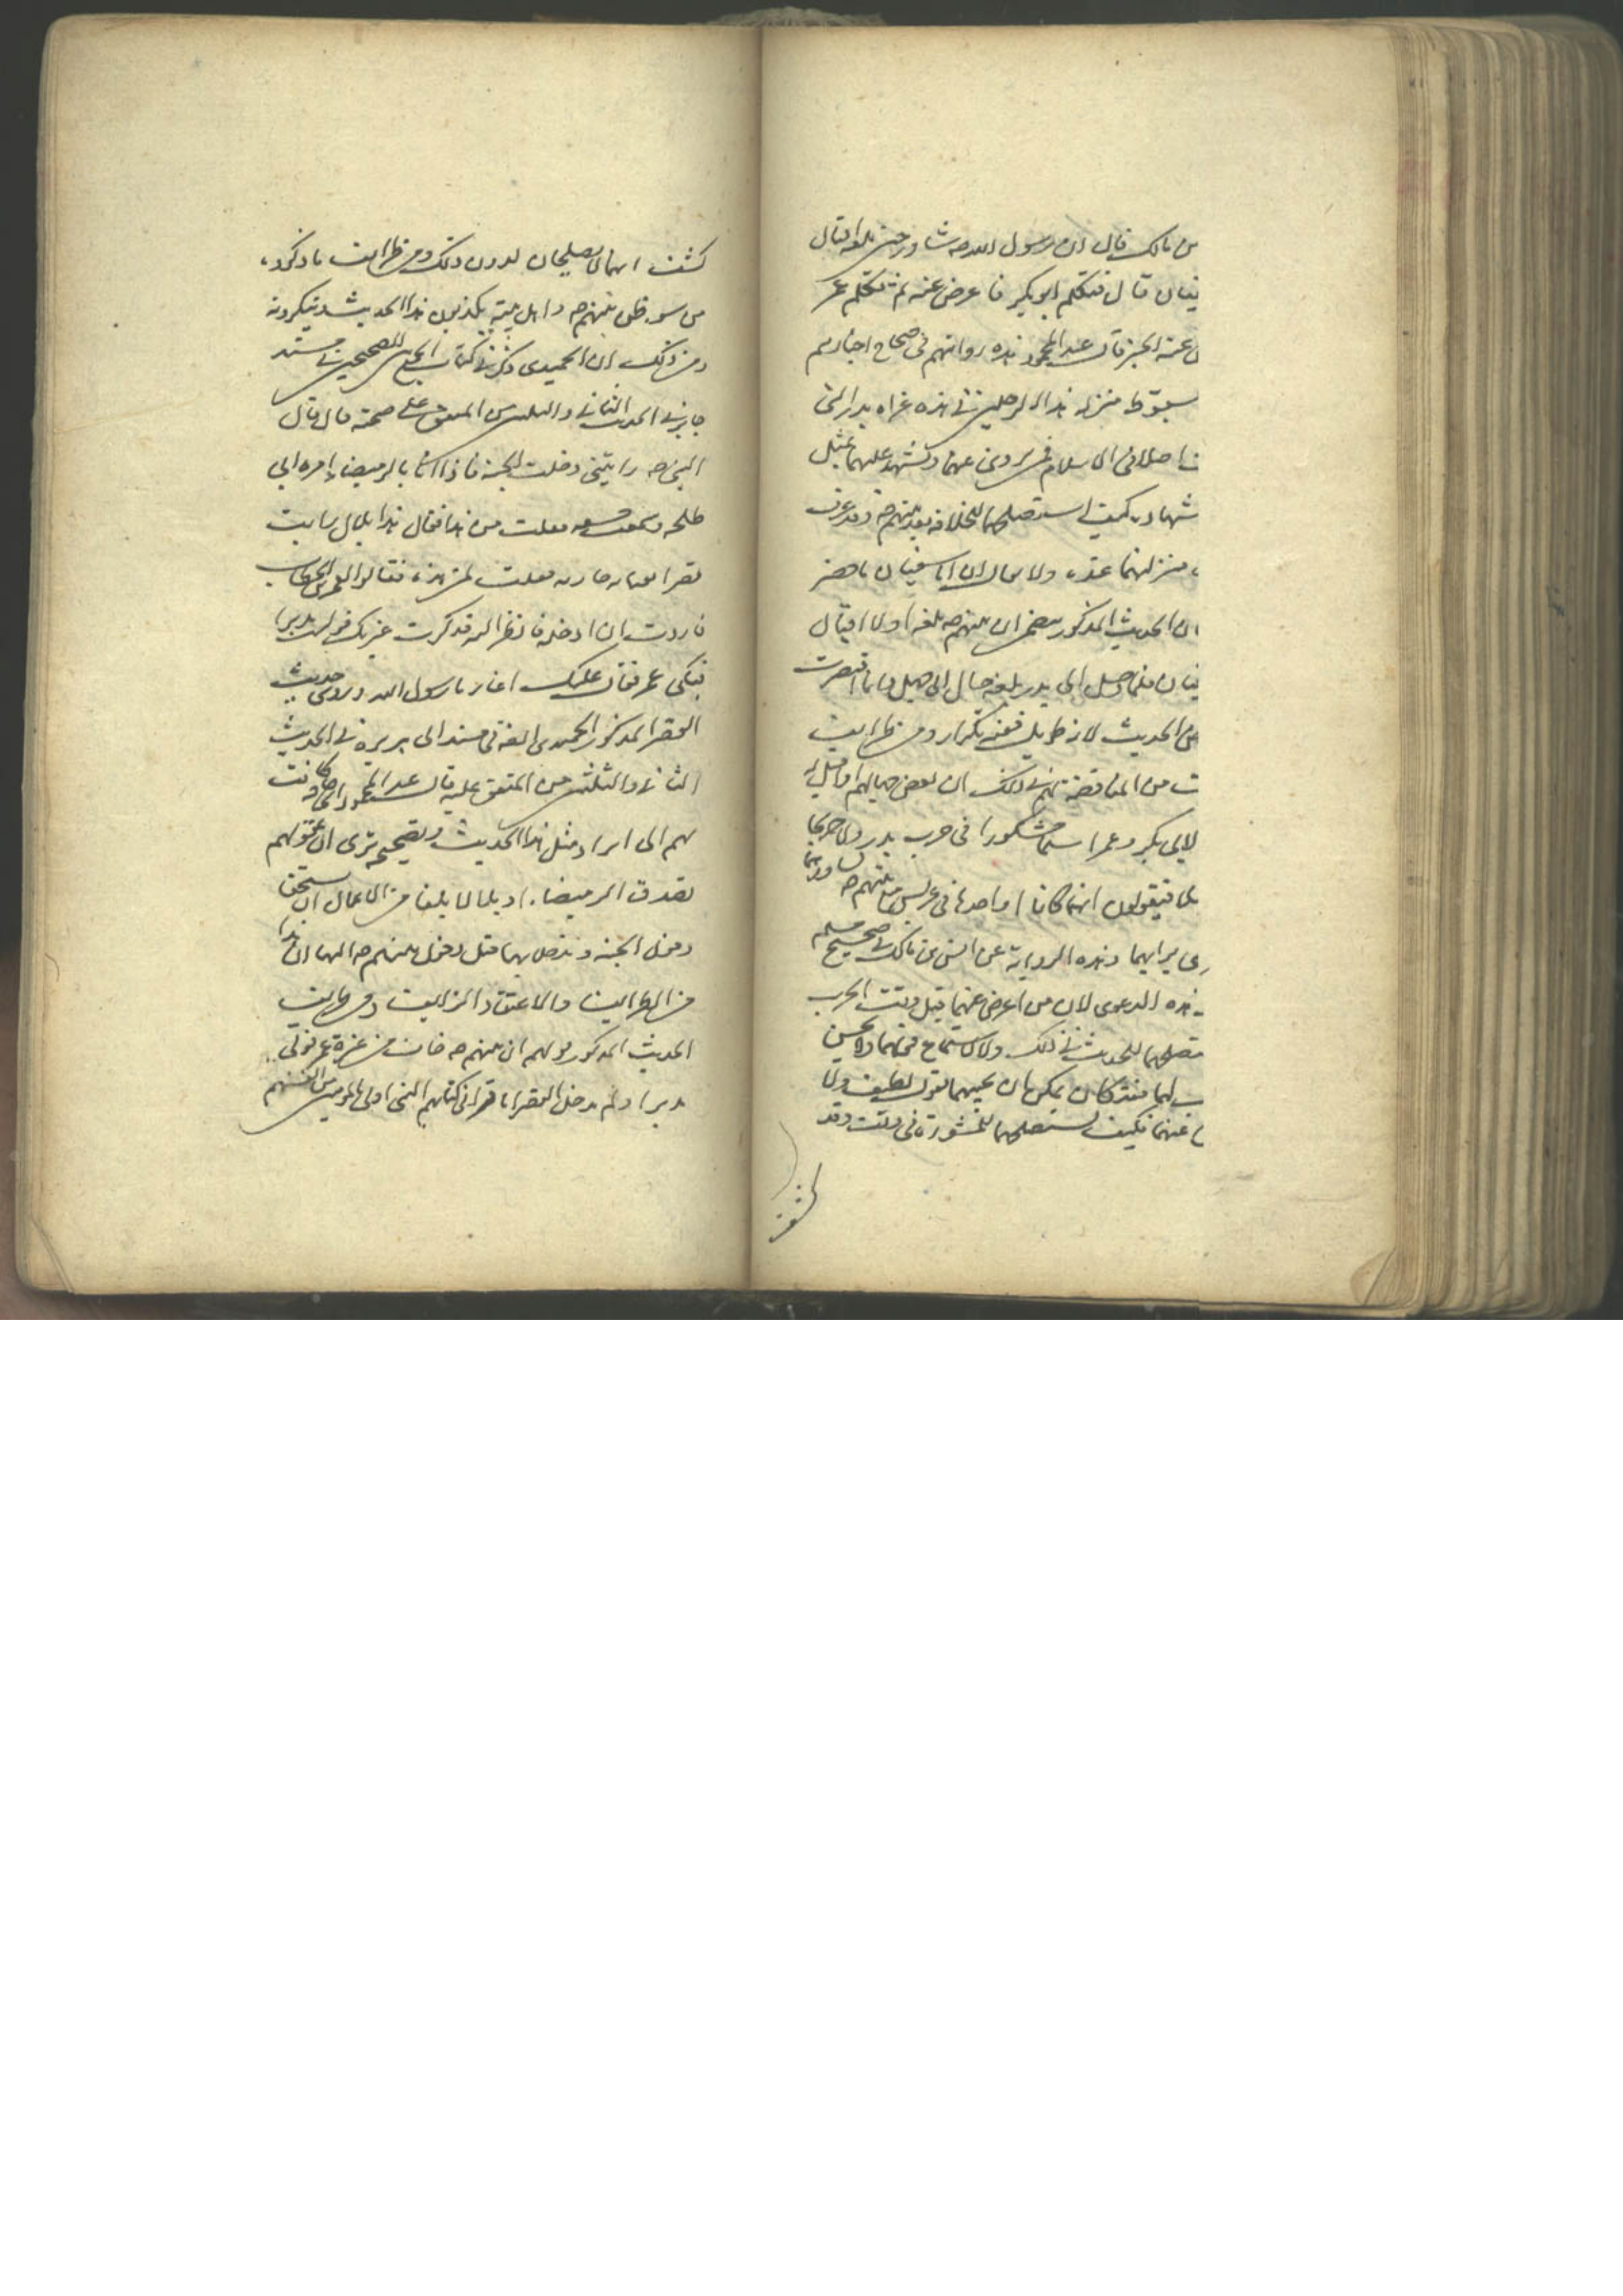 بن مالك قال ان رسول الله صه شاور حين بلغه اقبال
فيان قال فتكلم ابو بكر فاعرض عنه ثم تكلم عمر
عنه الخبر قال عبد المحمود هذه روايتهم في صحاح اخبارهم
بسقوط منزله هذا الرجلين في هذه غزاه بدر التي
اصلا في الاسلام فمن يروى عنهما ويشهد عليهما بمثل
شهاده كيف استصلحهما للخلافه بعد نبيهم صه وقد عرف
منزلتهما عنده ولا يقال ان ابا سفيان ما حضر
ان الحديث المذكور يتضمن ان نبيهم صه بلغه اولا اقبال
فيان فلما وصل الى بدر بلغه حال ابي جهل وانما اقتصرت
من الحديث لانه طويل فيه تكرار ومن طرايف
ت من المناقضة لهم في ذلك ان بعض جهالهم
لابي بكر وعمر اسما مشكورا في حرب بدر ولا حربا
فيقولون انهما كانا او احدهما في عريش مع نبيهم صه
برايهما وهذه الرواية عن انس بن مالك في صحيح مسلم
هذه الدعوى لان من اعرض عنهما قبل وقت الحرب
للحديث في ذلك ولا لاستماع قولهما ولا يحسن
لهما فقد كان يمكن ان يجيبهما بقول لطيف ولا
عنهما فكيف يستصلحهما للمشورة في وقت وقد
كشف
كشف انهما لا يصلحان لدون ذلك ومن طرايف ما ذكروه
من سوء ظن بنبيهم صه واهل بيته يكذبون هذا الحديث وينكرونه
ومن ذلك ان الحميدي ذكر في كتاب الجمع بين الصحيحين في مسند
جابر في الحديث الثاني والثلثين من المتفق على صحته قال قال
النبي صه رايتني دخلت الجنة فاذا انا بالرميصاء امراه ابي
طلحه وسمعت خشفه فقلت من هذا فقال هذا بلال ورايت
قصرا بفنائه جاريه فقلت لمن هذا فقالوا لعمر بن الخطاب
فاردت ان ادخله فانظر اليه فذكرت غيرتك فوليت مدبرا
فبكى عمر فقال عليك اغار يا رسول الله وروى حديث
القصر المذكور الحميدي ايضا في مسند ابي هريرة في الحديث
الثاني والثلثين من المتفق عليه قال عبد المحمود اي حاجة كانت
لهم الى ايراد مثل هذا الحديث وتصحيحه ترى ان عقولهم
تصدق ان الرميصاء او بلالا بلغا من الاعمال ان يستحقا
دخول الجنة ويتصل بهما قبل دخول نبيهم صه اليها ان هذا
من الطرايف والاعتقاد الزايف ومن طرايف
الحديث المذكور قولهم ان نبيهم صه خاف من غيرة عمر فولى
مدبرا ولم يدخل القصر اما قرأ في كتابهم النبي اولى بالمومنين من انفسهم